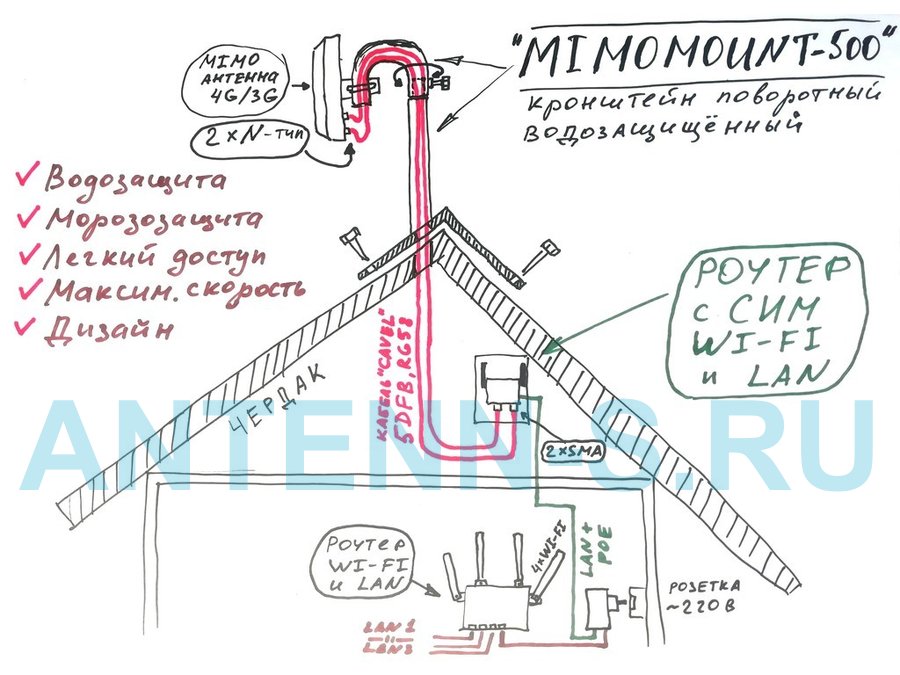 "MIMOMOUNT-500"
кронштейн поворотный
водозащищённый
MIMO
АНТЕННА
4G/3G
2×N-тип
Водозащита
Морозозащита
Легкий доступ
Максим. скорость
Дизайн
РОУТЕР
с СИМ
WI-FI
и LAN
КАБЕЛЬ "CAVEL"
5DFB, RG58
ЧЕРДАК
ANTENN-S.RU
2×SMA
LAN+
POE
РОУТЕР
WI-FI
и LAN
4×WI-FI
РОЗЕТКА
~220В
LAN1
LAN3